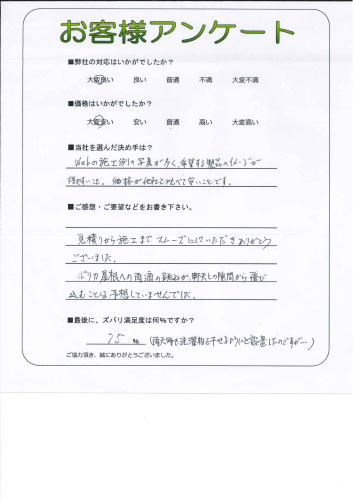 お客様アンケート
■弊社の対応はいかがでしたか？
大変良い 良い 普通 不満 大変不満
■価格はいかがでしたか？
大変安い 安い 普通 高い 大変高い
■当社を選んだ決め手は？
Webの施工例の写真が多く、希望する製品のイメージが
得やすいこと。価格が他社と比べて安いことです。
■ご感想・ご要望などをお書き下さい。
見積りから施工までスムーズにいただきありがとう
ございました。
ポリカ屋根への雨滴の跳ねが、軒天との隙間から飛び
込むことは予想していませんでした。
■最後に、ズバリ満足度は何%ですか？
75 % (雨天時も洗濯物を干せるようにと設置したのですが…)
ご協力頂き、誠にありがとうございました。